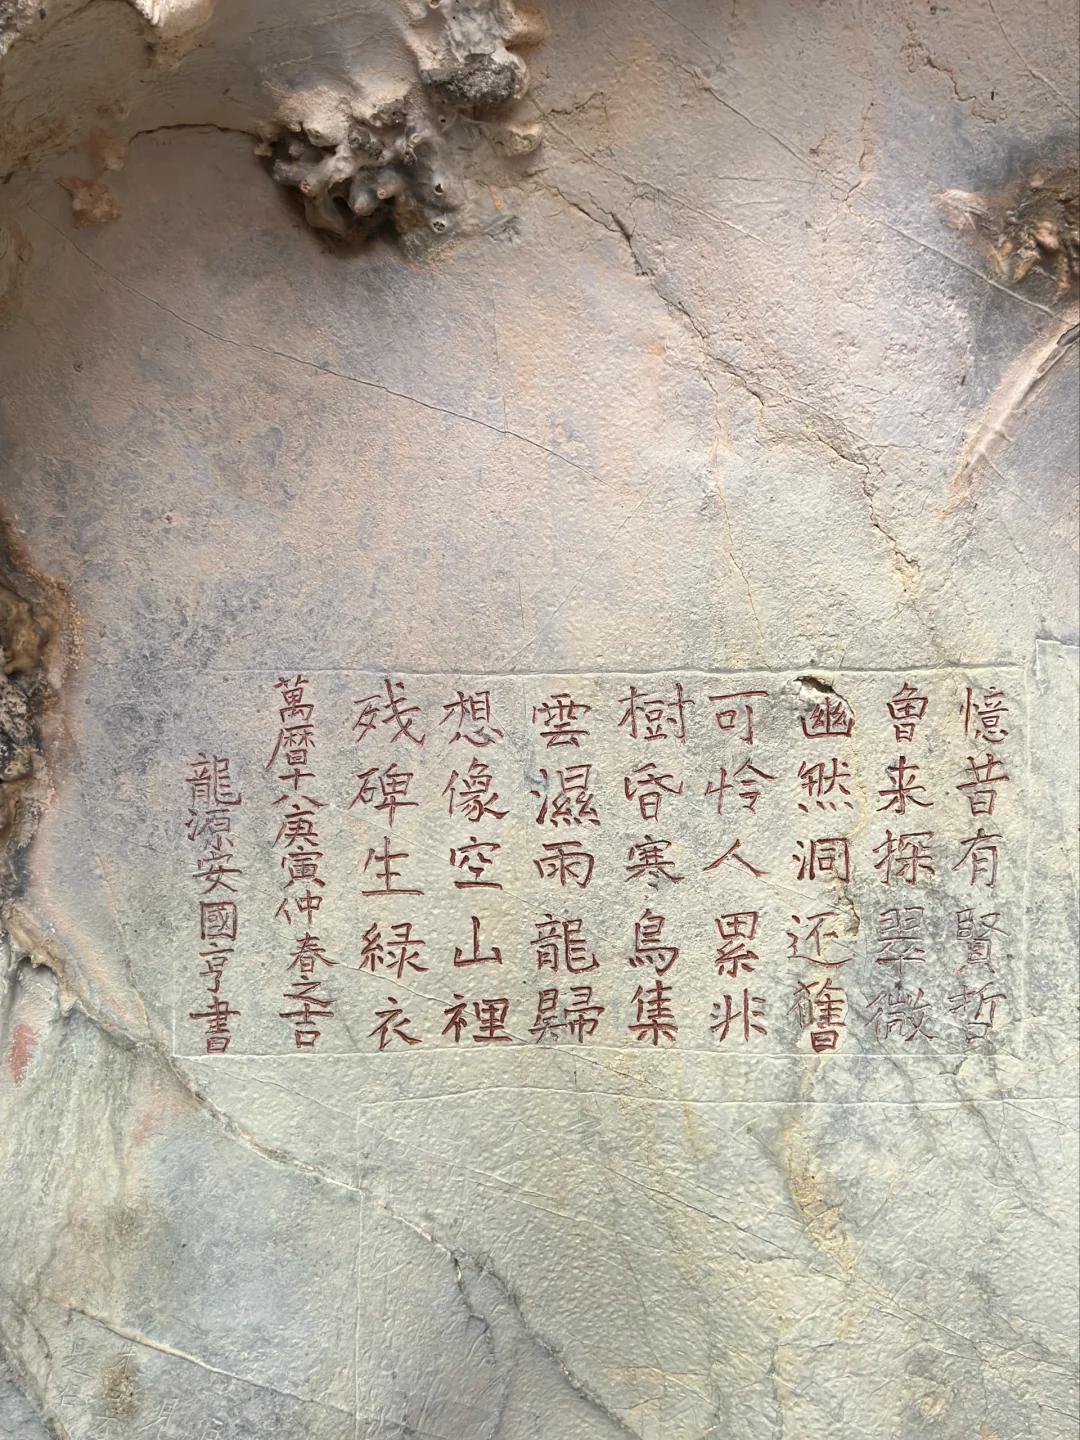 憶昔有賢哲
魯来探翠微
幽然洞还舊
可怜人累非
樹昏寒鳥集
雲濕雨龍歸
想像空山裡
残碑生緑衣
萬曆十八庚寅仲春之吉
龍源安國亨書